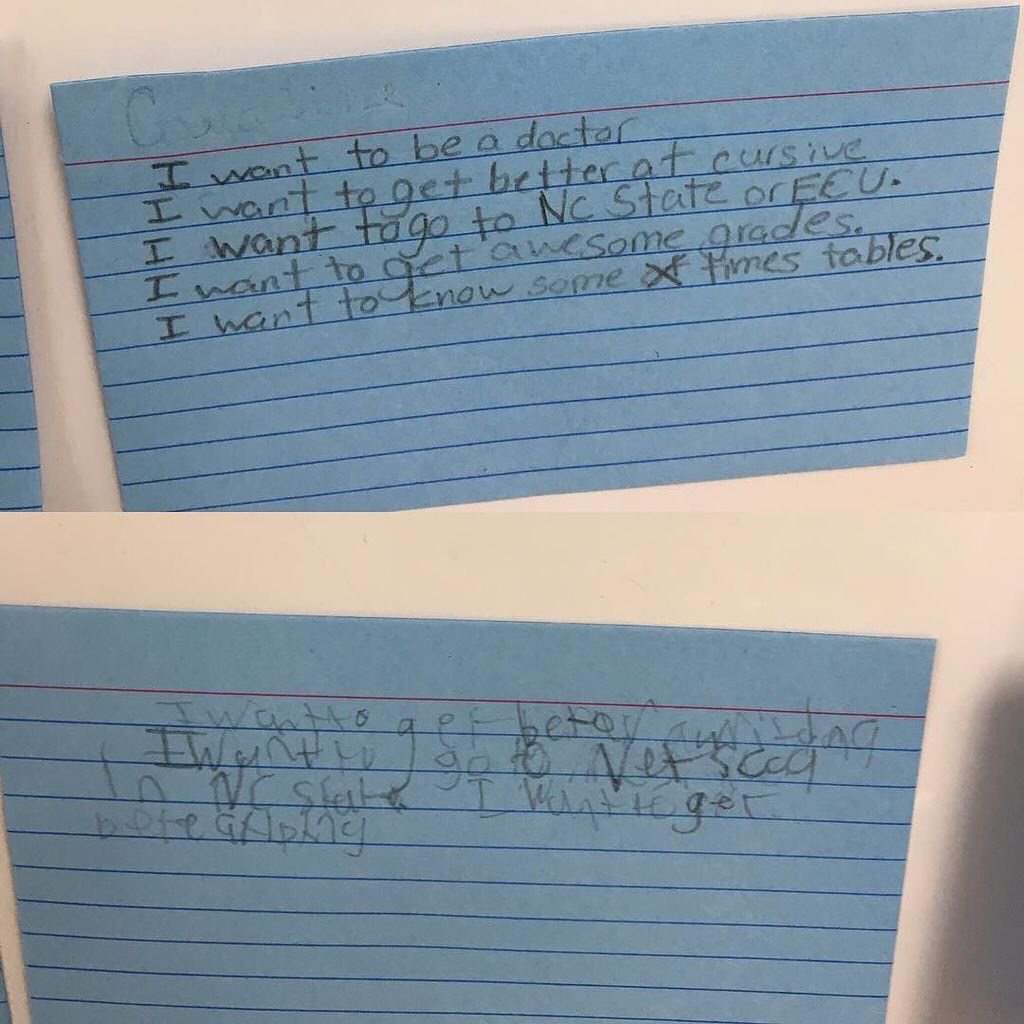 I want to be a doctor
I want to get better at cursive
I want to go to NC State or ECU.
I want to get awesome grades.
I want to know some times tables.
I want to get betor
I Want to go to
In NC State I Want to get